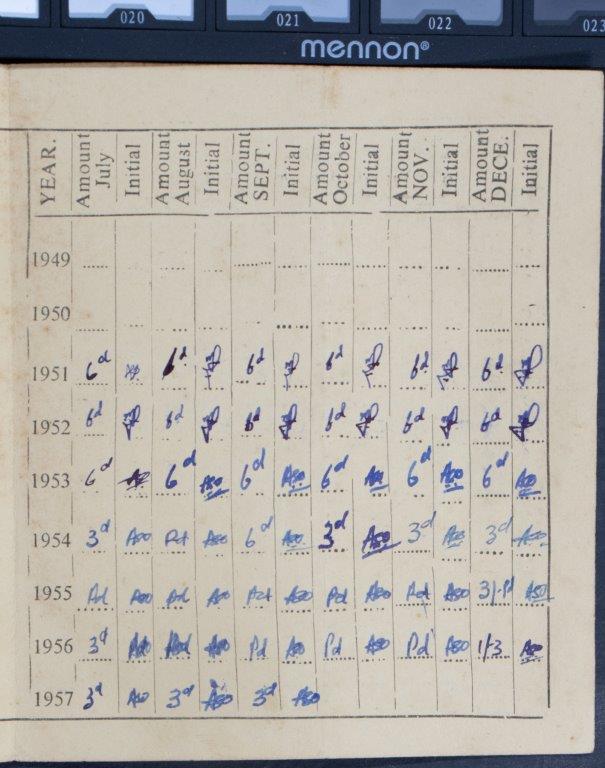 020 021 022 023
mennon®
YEAR. Amount July Initial Amount August Initial Amount SEPT. Initial Amount October Initial Amount NOV. Initial Amount DECE. Initial
1949
1950
1951 6d 6d 6d 6d 6d 6d
1952 6d 6d 6d 6d 6d 6d
1953 6d 6d ASO 6d ASO 6d ASO 6d ASO 6d ASO
1954 3d ASO Pd ASO 6d ASO 3d ASO 3d ASO 3d ASO
1955 Pd ASO Pd ASO Pd ASO Pd ASO Pd ASO ASO
1956 3d Pd ASO Pd ASO Pd ASO Pd ASO 1/-3 ASO
1957 3d ASO 3d ASO 3d ASO